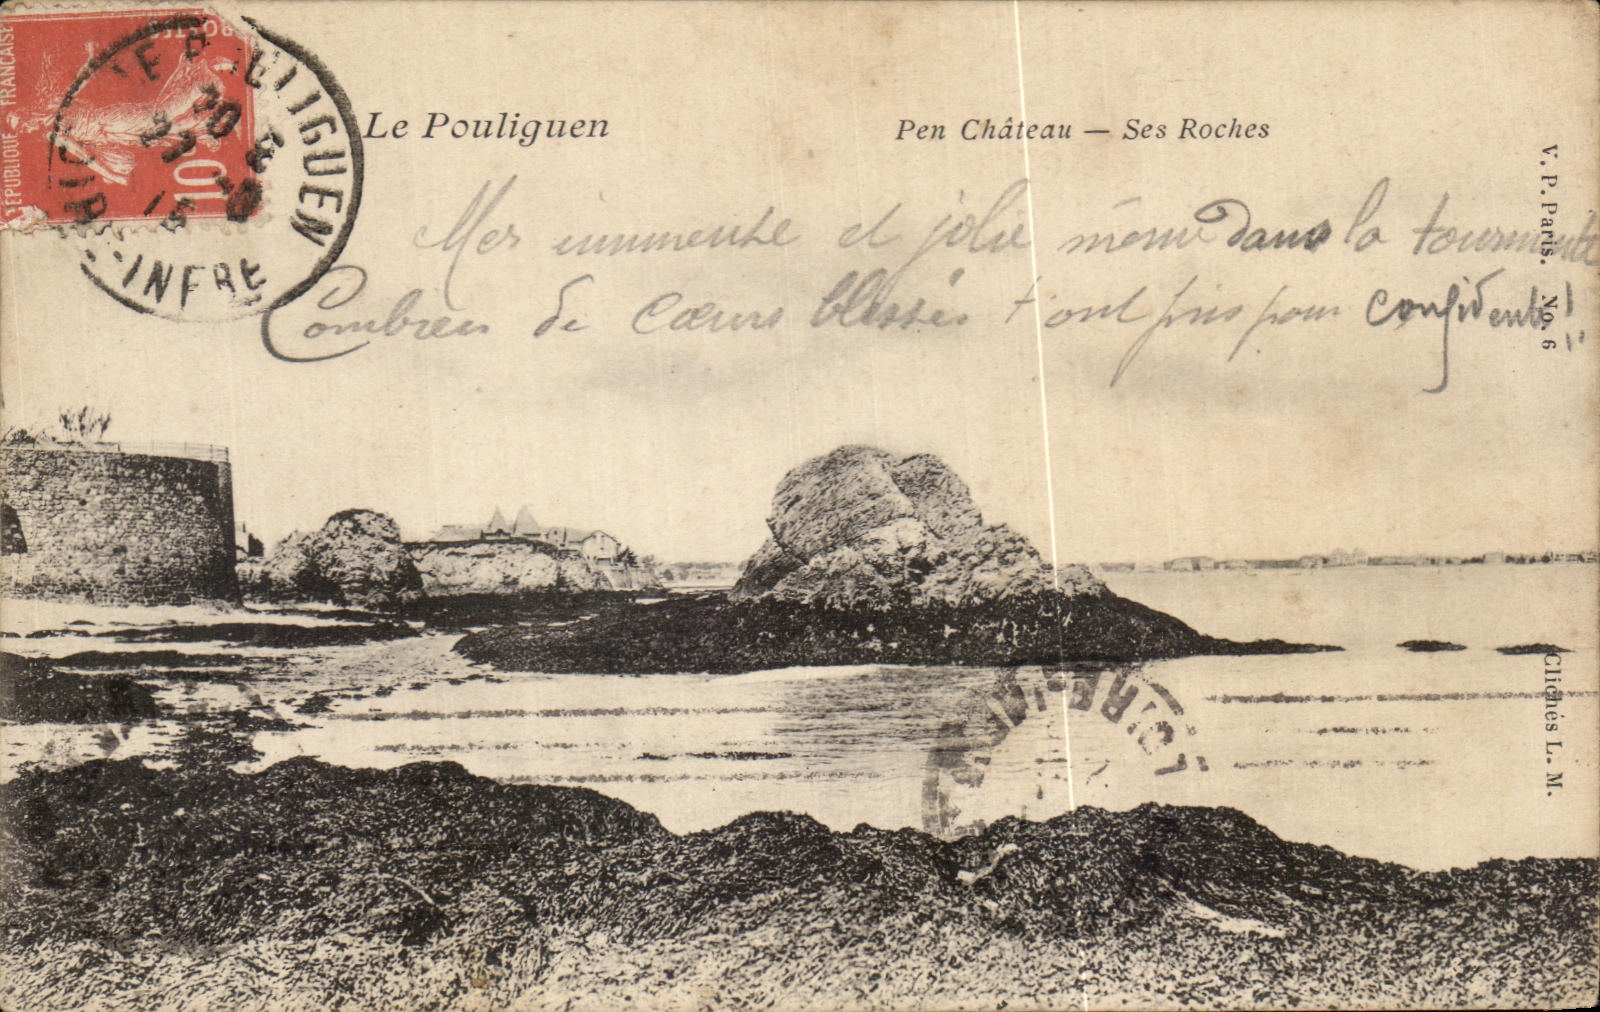 REPUBLIQUE FRANÇAISE
POSTES
10
LE POULIGUEN
INFRE
Le Pouliguen
Pen Château — Ses Roches
Mer immense et jolie même dans la tourmente
Combien de cœurs blessés t'ont pris pour confident!!
V. P. Paris. No. 6
Clichés L. M.
LOIRE INF